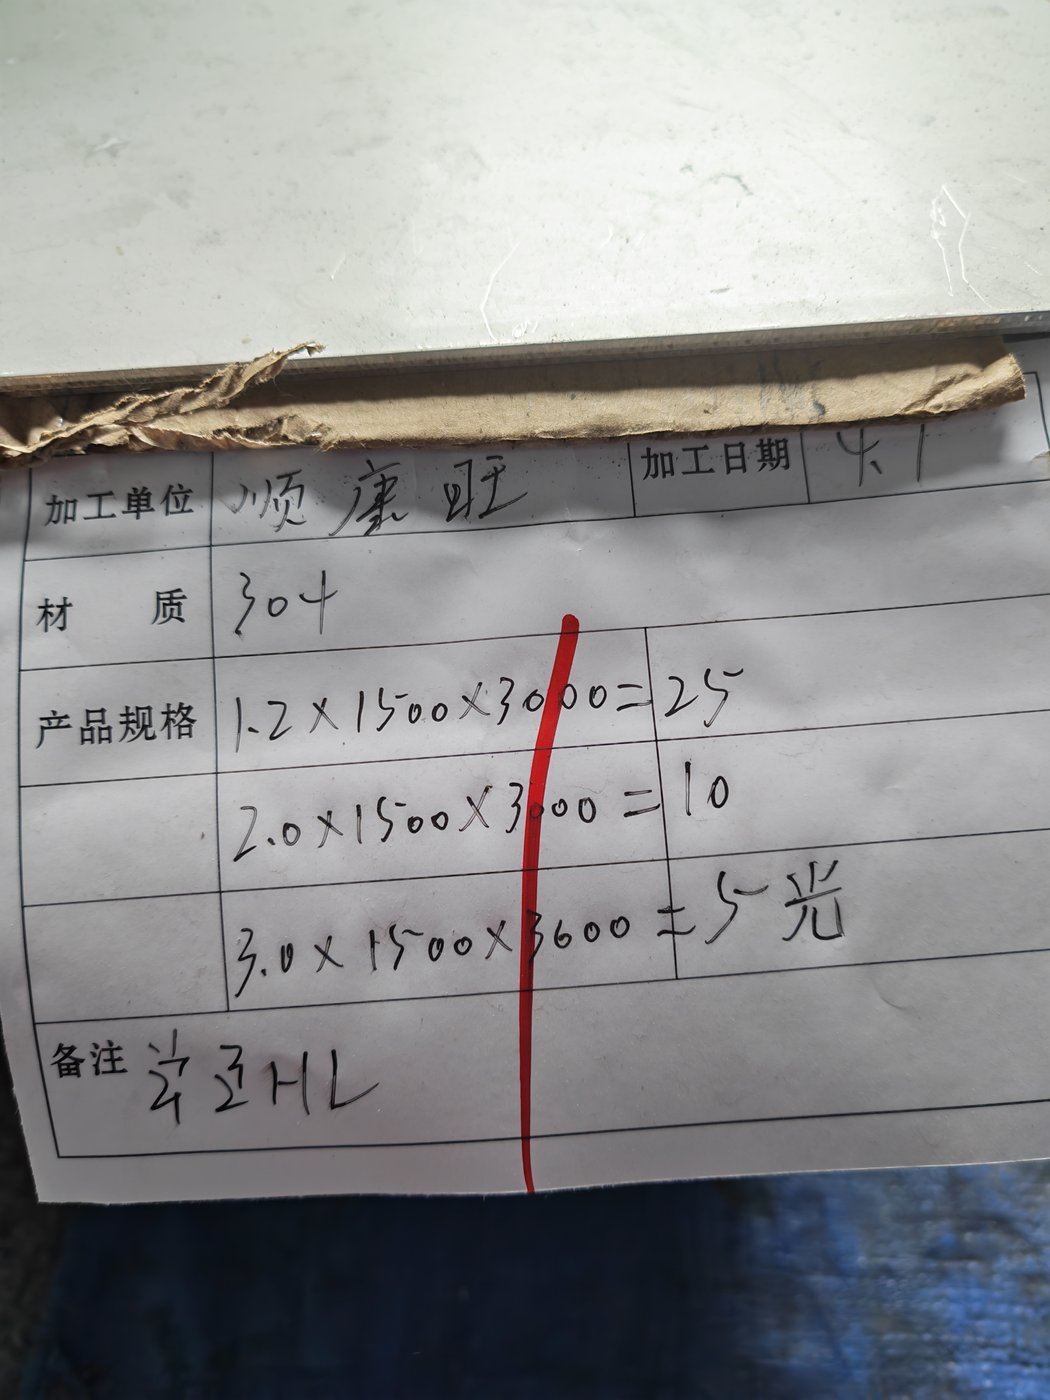 加工单位 顺康旺 加工日期 4.1
材 质 304
产品规格 1.2×1500×3000=25
2.0×1500×3000=10
3.0×1500×3600=5光
备注 HL